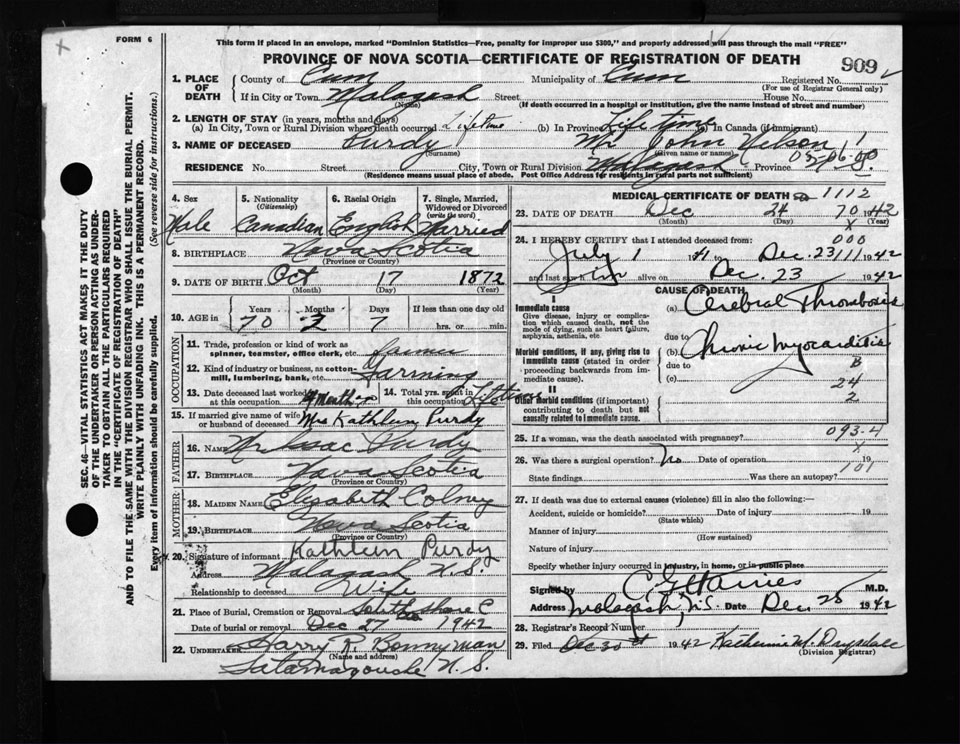 FORM 6
This form if placed in an envelope, marked "Dominion Statistics—Free, penalty for improper use $300," and properly addressed will pass through the mail "FREE"
PROVINCE OF NOVA SCOTIA—CERTIFICATE OF REGISTRATION OF DEATH
909
1. PLACE OF DEATH County of Cum Municipality of Cum Registered No.
(For use of Registrar General only)
If in City or Town Malagash Street House No.
(Name) (If death occurred in a hospital or institution, give the name instead of street and number)
2. LENGTH OF STAY (in years, months and days)
(a) In City, Town or Rural Division where death occurred Lifetime (b) In Province Life time (c) In Canada (if immigrant)
3. NAME OF DECEASED Purdy Mr John Nelson
(Surname) (Given name or names)
RESIDENCE No. Street City, Town or Rural Division Malagash Province N.S.
(Residence means usual place of abode. Post Office Address for residents in rural parts not sufficient)
4. Sex 5. Nationality (Citizenship) 6. Racial Origin 7. Single, Married, Widowed or Divorced (write the word)
Male Canadian English Married
8. BIRTHPLACE Nova Scotia
(Province or Country)
9. DATE OF BIRTH Oct 17 1872
(Month) (Day) (Year)
10. AGE in Years Months Days If less than one day old
70 2 7 hrs. or min.
OCCUPATION
11. Trade, profession or kind of work as spinner, teamster, office clerk, etc. Farmer
12. Kind of industry or business, as cotton-mill, lumbering, bank, etc. Farming
13. Date deceased last worked at this occupation 14. Total yrs. spent in this occupation Lifetime
15. If married give name of wife or husband of deceased Mrs Kathleen Purdy
FATHER
16. NAME Mr Isac Purdy
17. BIRTHPLACE Nova Scotia
(Province or Country)
MOTHER
18. MAIDEN NAME Elizabeth
19. BIRTHPLACE Nova Scotia
(Province or Country)
20. Signature of informant Kathleen Purdy
Address Malagash N.S.
Relationship to deceased Wife
21. Place of Burial, Cremation or Removal South Shore C
Date of burial or removal Dec 27 1942
22. UNDERTAKER Harry R. Bonnyman
(Name and address)
Tatamagouche N. S.
MEDICAL CERTIFICATE OF DEATH 1112
23. DATE OF DEATH Dec 24 1942
(Month) (Day) (Year)
24. I HEREBY CERTIFY that I attended deceased from:
July 1 41 to Dec. 23 1942
and last saw him alive on Dec. 23 1942
CAUSE OF DEATH
I
Immediate cause
Give disease, injury or complication which caused death, not the mode of dying, such as heart failure, asphyxia, asthenia, etc.
(a) Cerebral Thrombosis
due to
Morbid conditions, if any, giving rise to immediate cause (stated in order proceeding backwards from immediate cause).
(b) Chronic Myocarditis
due to B
(c) 24
2
II
Other morbid conditions (if important) contributing to death but not causally related to immediate cause.
25. If a woman, was the death associated with pregnancy? 093-4
26. Was there a surgical operation? No Date of operation 19
101
State findings Was there an autopsy?
27. If death was due to external causes (violence) fill in also the following:—
Accident, suicide or homicide? Date of injury 19
(State which)
Manner of injury
(How sustained)
Nature of injury
Specify whether injury occurred in industry, in home, or in public place
Signed by M.D.
Address Malagash, N.S. Date Dec 25 1942
28. Registrar's Record Number
29. Filed Dec 30 1942 Katherine M. Drysdale
(Division Registrar)
SEC. 46—VITAL STATISTICS ACT MAKES IT THE DUTY
OF THE UNDERTAKER OR PERSON ACTING AS UNDERTAKER TO OBTAIN ALL THE PARTICULARS REQUIRED
IN THE "CERTIFICATE OF REGISTRATION OF DEATH"
AND TO FILE THE SAME WITH THE DIVISION REGISTRAR WHO SHALL ISSUE THE BURIAL PERMIT.
WRITE PLAINLY WITH UNFADING INK. THIS IS A PERMANENT RECORD.
Every item of information should be carefully supplied. (See reverse side for instructions.)